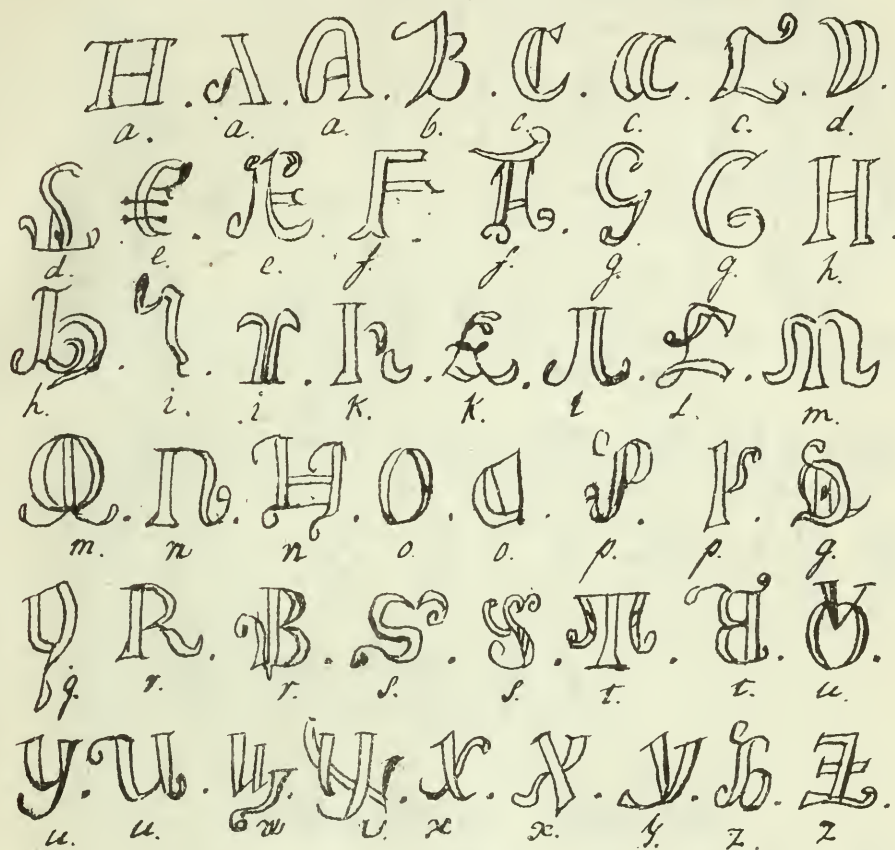 H. A. A B. C. C. L. D
a. a. a. b. c. c. c. d.
S € . Æ F A. G G H.
d. e. e. f. f. g. g. h.
h. i . r. K. £. Л. L. M
h. i. i k. k. l l. m.
M. N. H. O. a. P. P. S
m. n n o. o. p. p. q.
q R. B. S. S. T. B. Ȣ
q. r. r. s. s. t. t. u.
Y. U. W. Y. X. X. Y. h. Z
u. u. w v. x x. y. z. z